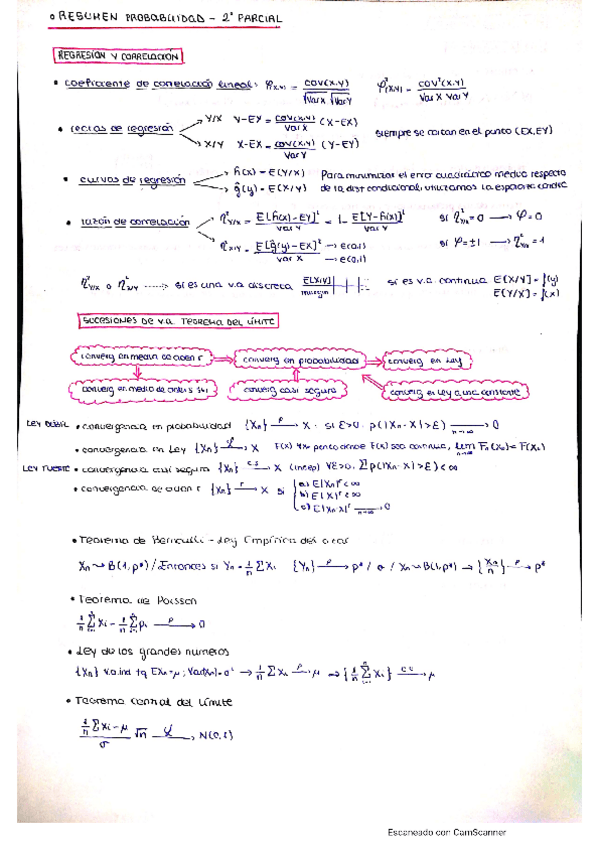 ○ RESUMEN PROBABILIDAD - 2º PARCIAL
REGRESIÓN Y CORRELACIÓN
• coeficiente de correlación lineal: φ(x,y) = cov(x,y) / √Var x √Var y    φ²(x,y) = cov²(x,y) / Var x Var y
• rectas de regresión → Y/X  Y-EY = cov(x,y)/Var X (X-EX)
→ X/Y  X-EX = cov(x,y)/Var Y (Y-EY)    siempre se cortan en el punto (EX,EY)
• curvas de regresión → ĥ(x) = E(Y/X)    Para minimizar el error cuadrático medio respecto
→ ĝ(y) = E(X/Y)    de la dist condicional, utilizamos la esperanza condic
• razón de correlación → η²Y/X = E[ĥ(x)-EY]²/Var Y = 1- E[Y-ĥ(x)]²/Var Y    si η²Y/X = 0 → φ=0
→ η²X/Y = E[ĝ(y)-EX]²/Var X → e(0,1) → e(0,1)    si φ=±1 → η²Y/X = 1
η²Y/X o η²X/Y ------> si es una v.a discreta E[X/Y]    si es v.a. continua E[X/Y] = f(y)
E[Y/X] = f(x)
SUCESIONES DE V.A. TEOREMA DEL LÍMITE
converg en media de orden r ⇒ converg en probabilidad ⇒ converg en Ley
converg en medio de orden s s<r    converg casi segura    converg en Ley a una constante
LEY DÉBIL • convergencia en probabilidad {Xn} →p X si ε>0 p(|Xn-X|>ε) →n→∞ 0
• convergencia en Ley {Xn} →L X    F(x) ∀x punto donde F(x) sea continua, lim n→∞ Fn(x0) = F(x0)
LEY FUERTE • convergencia casi segura {Xn} →c.s X (indep) ∀ε>0. Σp(|Xn-X|>ε) < ∞
• convergencia de orden r {Xn} →r X si a) E|Xn|ʳ < ∞
b) E|X|ʳ < ∞
c) E|Xn-X|ʳ →n→∞ 0
• Teorema de Bernoulli - Ley Empírica del azar
Xn ~ B(1,p*) / Entonces si Yn = 1/n Σ Xi {Yn} →p p* / o / Xn ~ B(1,p*) → {Xn/n} →p p*
• Teorema de Poisson
1/n Σ Xi - 1/n Σ pi →p 0
• Ley de los grandes números
{Xn} v.a. ind tq EXn=μ; Var[Xn]=σ² → 1/n Σ Xi →p μ ⇒ {1/n Σ Xi} →c.s μ
• Teorema central del límite
(1/n Σ Xi - μ)/σ √n →L N(0,1)
Escaneado con CamScanner